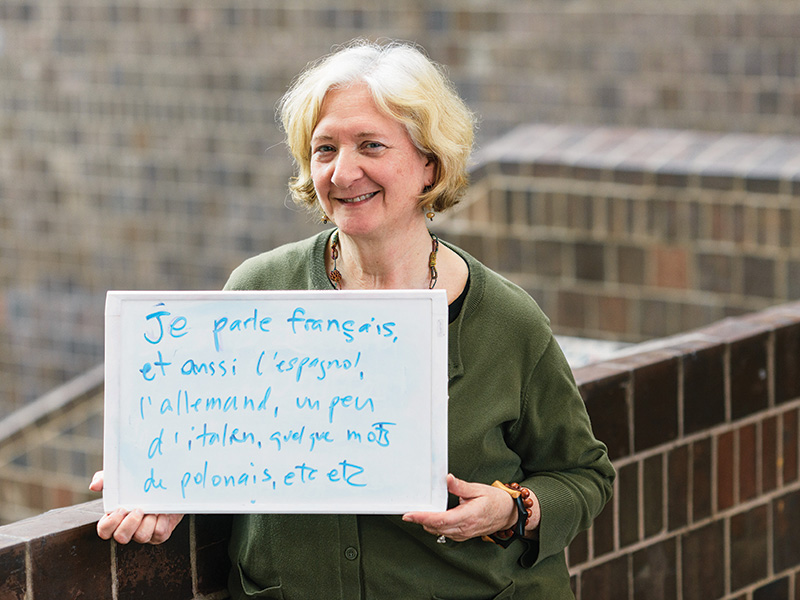 Je parle français,
et aussi l'espagnol,
l'allemand, un peu
d'italien, quelque mots
de polonais, etc etc